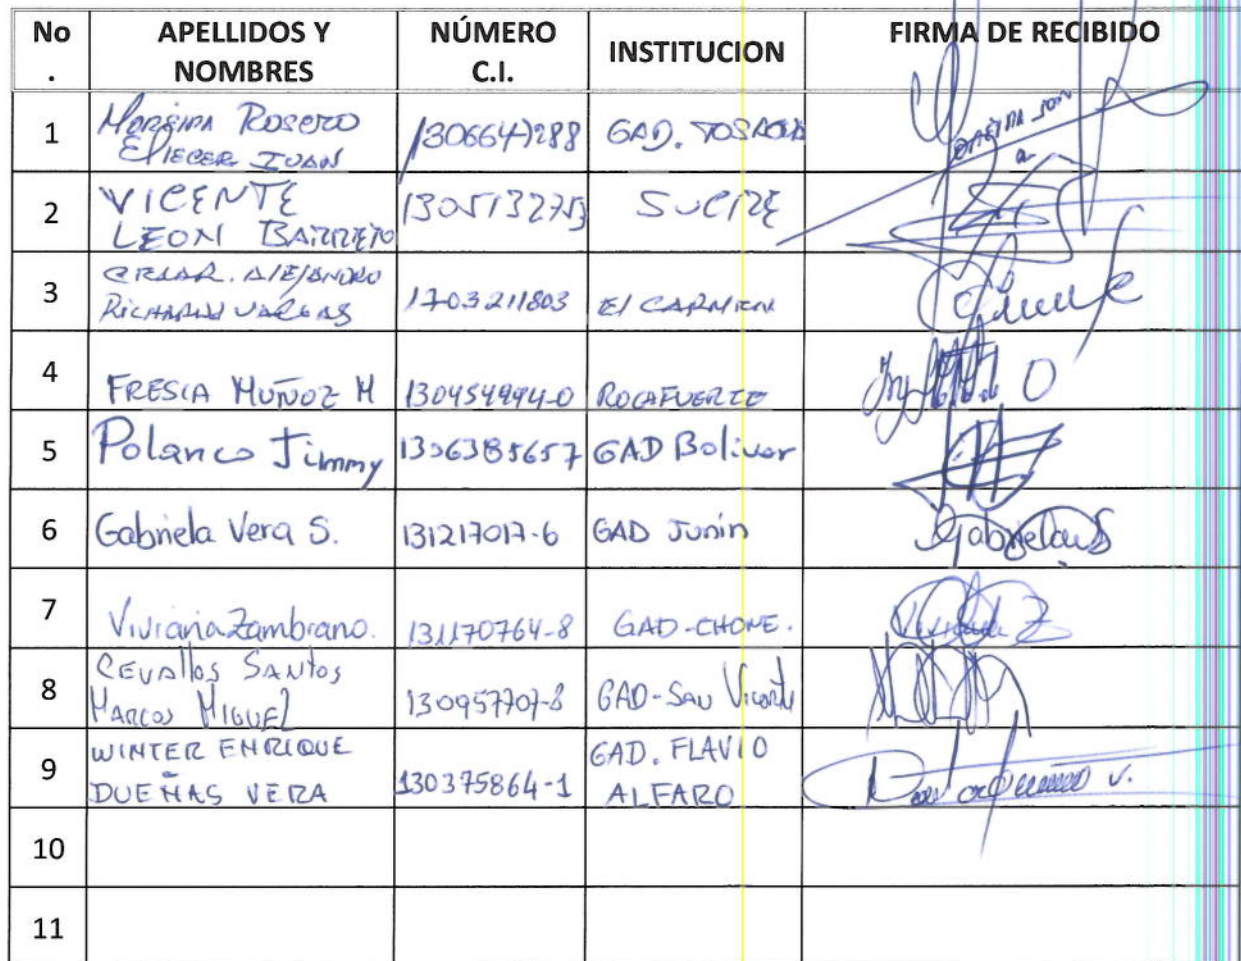 No. APELLIDOS Y NOMBRES NÚMERO C.I. INSTITUCION FIRMA DE RECIBIDO
1 Moreira Rosero Eliecer Ivan 1306647288 GAD. TOSAGUA
2 VICENTE LEON BARRETO 130513275 SUCRE
3 CESAR. AlEJANDRO RICHARD VARGAS 1703211803 El CARMEN
4 FRESIA MUÑOZ M 130454994-0 ROCAFUERTE
5 Polanco Jimmy 1306385657 GAD Bolivar
6 Gabriela Vera S. 131217017-6 GAD Junin
7 Viviana Zambrano. 131170764-8 GAD-CHONE.
8 CEVAllos SANtos MARCOS MIGUEl 130957707-8 GAD-SAN Vicente
9 WINTER ENRIQUE DUEÑAS VERA 130375864-1 GAD. FLAVIO ALFARO
10
11